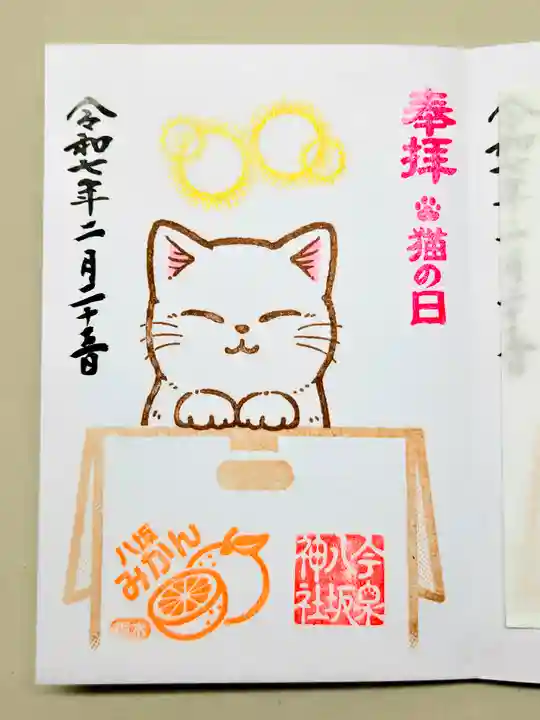 奉拝
猫の日
令和七年二月二十三日
八坂
みかん
今泉
八坂
神社